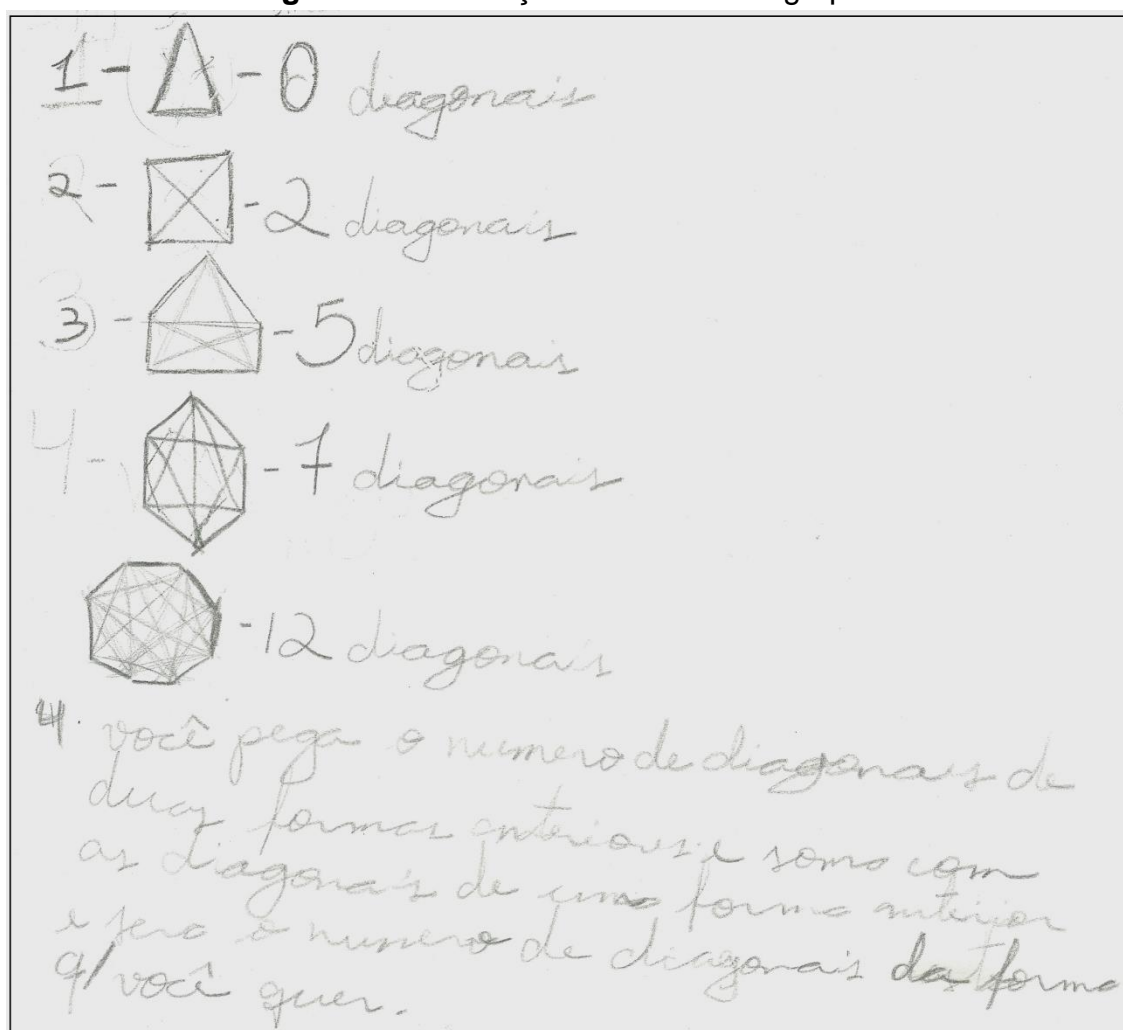 1 - - 0 diagonais
2 - - 2 diagonais
3 - - 5 diagonais
4 - - 7 diagonais
- 12 diagonais
4. você pega o numero de diagonais de
duas formas anteriores e soma com
as diagonais de uma forma anterior
e sera o numero de diagonais da forma
q/ você quer.